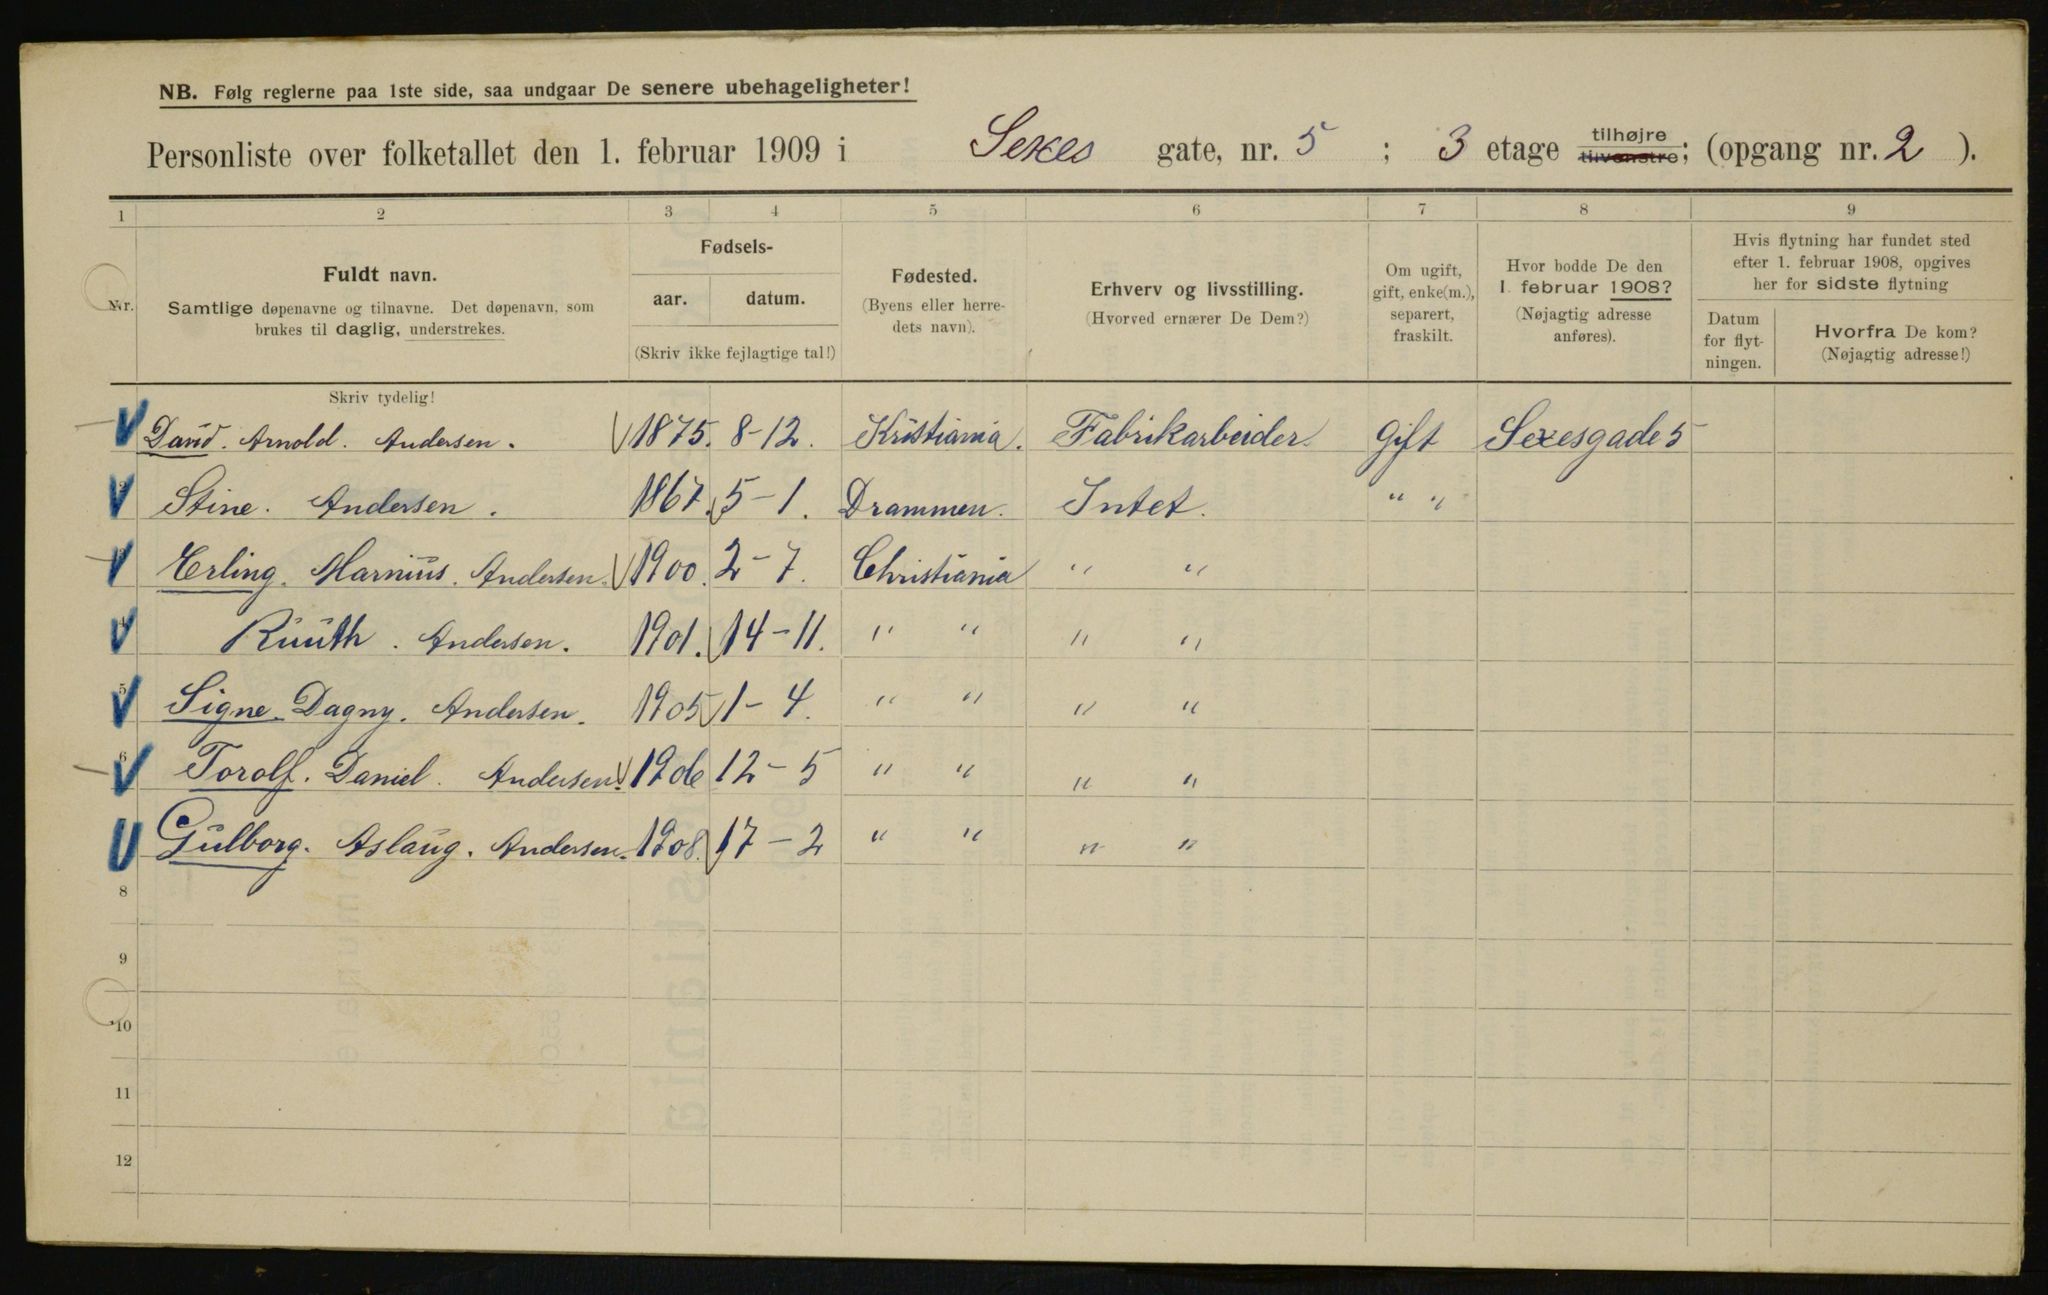 NB. Følg reglerne paa 1ste side, saa undgaar De senere ubehageligheter!
Personliste over folketallet den 1. februar 1909 i Sexes gate, nr. 5 ; 3 etage tilhøjre tilvenstre; (opgang nr. 2 ).
1 2 3 4 5 6 7 8 9
Nr.
Fuldt navn.
Samtlige døpenavne og tilnavne. Det døpenavn, som
brukes til daglig, understrekes.
Fødsels-
aar. datum.
(Skriv ikke fejlagtige tal!)
Fødested.
(Byens eller herre-
dets navn).
Erhverv og livsstilling.
(Hvorved ernærer De Dem?)
Om ugift,
gift, enke(m.),
separert,
fraskilt.
Hvor bodde De den
1. februar 1908?
(Nøjagtig adresse
anføres).
Hvis flytning har fundet sted
efter 1. februar 1908, opgives
her for sidste flytning
Datum
for flyt-
ningen.
Hvorfra De kom?
(Nøjagtig adresse!)
Skriv tydelig!
David. Arnold. Andersen. 1875. 8-12. Kristiania. Fabrikarbeider. Gift Sexesgade 5
Stine. Andersen. 1867. 5-1. Drammen. Intet. " "
Erling. Marnius. Andersen. 1900. 2-7. Christiania " "
Ruuth. Andersen. 1901. 14-11. " " " "
5 Signe. Dagny. Andersen. 1905 1-4. " " " "
6 Torolf. Daniel. Andersen. 1906 12-5 " " " "
Gulborg. Aslaug. Andersen. 1908. 17-2 " " " "
8
9
10
11
12